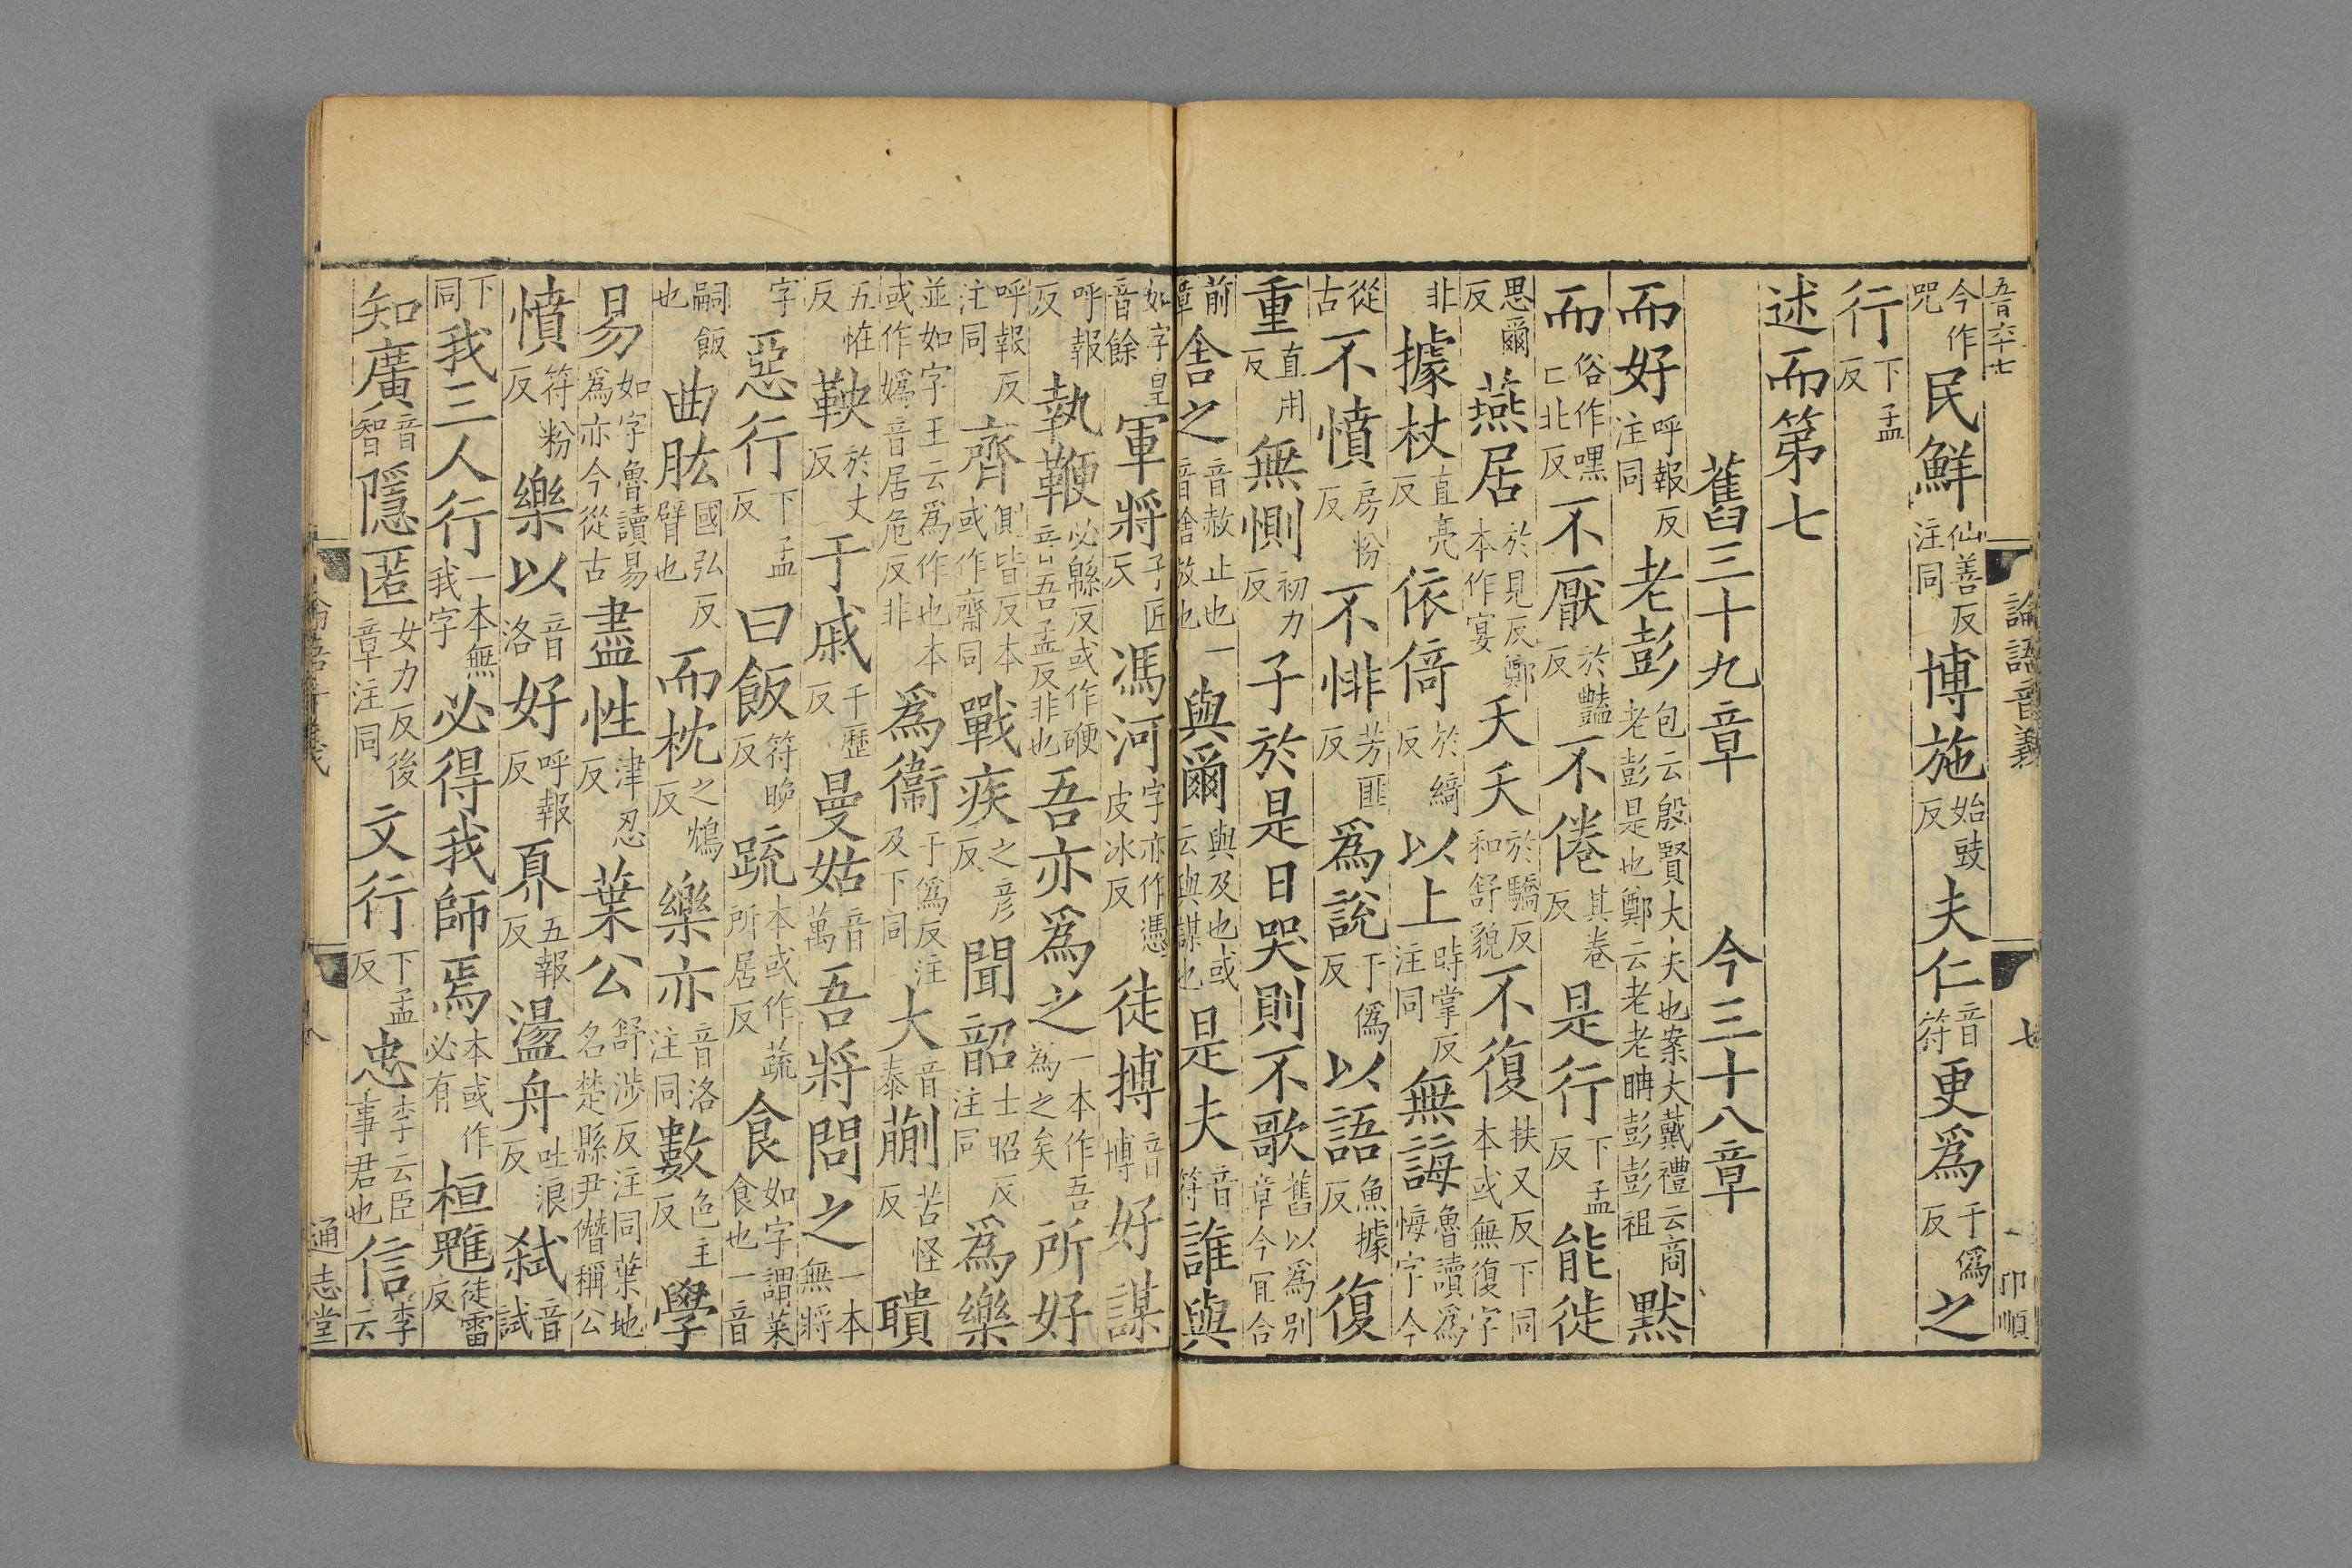 五百六十七 論語音義 七 卬順
今作咒民鮮仙善反注同博施始豉反夫仁音符更爲于僞反之
行下孟反
述而第七
舊三十九章 今三十八章
而好呼報反注同老彭包云殷賢大夫也案大戴禮云商老彭是也鄭云老老聃彭彭祖默
而俗作嘿亡北反不厭於豔反不倦其卷反是行下孟反能徙
思爾反燕居於見反鄭本作宴夭夭於驕反和舒貌不復扶又反下同本或無復字
非據杖直亮反依倚於綺反以上時掌反注同無誨魯讀爲悔字今
從古不憤房粉反不悱芳匪反爲說于僞反以語魚據反復
重直用反無惻初力反子於是日哭則不歌舊以爲別章今宜合
前章舍之音赦止也一音捨放也與爾與及也或云與謀也是夫音符誰與
如字皇音餘軍將子匠反馮河字亦作憑皮冰反徒搏音博好謀
呼報反執鞭必緜反或作硬音吾孟反非也吾亦爲之一本作吾爲之矣所好
呼報反注同齊側皆反本或作齋同戰疾之彥反聞韶士昭反注同爲樂
並如字王云爲作也本或作嬀音居危反非爲衞于僞反注及下同大音泰蒯苦怪反聵
五怪反鞅於丈反于戚千歷反曼姑音萬吾將問之一本無將
字惡行下孟反曰飯符晚反疏本或作蔬所居反食如字謂菜食也一音
嗣飯也曲肱國弘反臂也而枕之鴆反樂亦音洛注同數色主反學
易如字魯讀易爲亦今從古盡性津忍反葉公舒涉反注同葉地名楚縣尹僭稱公
憤符粉反樂以音洛好呼報反奡五報反盪舟吐浪反弒音試
下同我三人行一本無我字必得我師焉本或作必有桓魋徒雷反
知廣音智隱匿女力反後章注同文行下孟反忠李云臣事君也信李云
論語音義 八 通志堂